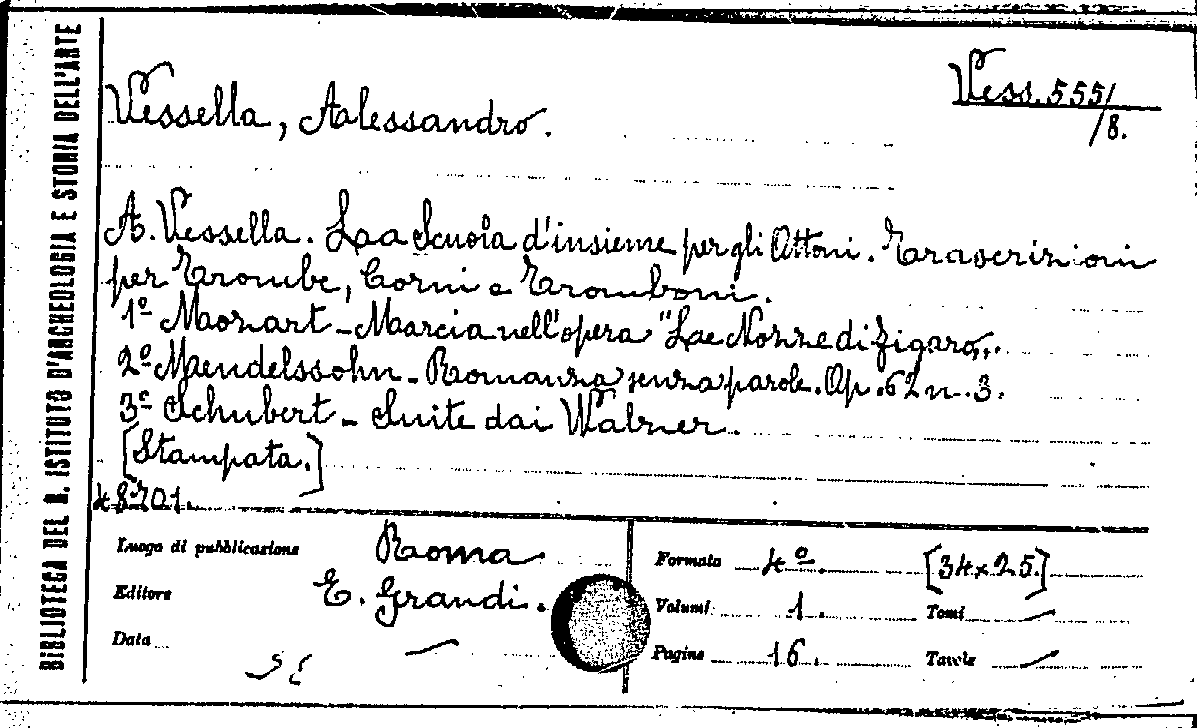 BIBLIOTECA DEL R. ISTITUTO D'ARCHEOLOGIA E STORIA DELL'ARTE
Vess. 555/
/8.
Vessella, Alessandro.
A. Vessella. La Scuola d'insieme per gli Ottoni. Trascrizioni
per Trombe, Corni e Tromboni.
1º Mozart - Marcia nell'opera "Le Nozze di Figaro".
2º Mendelssohn - Romanza senza parole. Op. 62 n. 3.
3º Schubert - Suite dai Walzer.
[Stampata.]
48701.
Luogo di pubblicazione Roma
Editore E. Grandi.
Data —
Formato 4º. [34x25.]
Volumi 1. Tomi —
Pagine 16. Tavole —